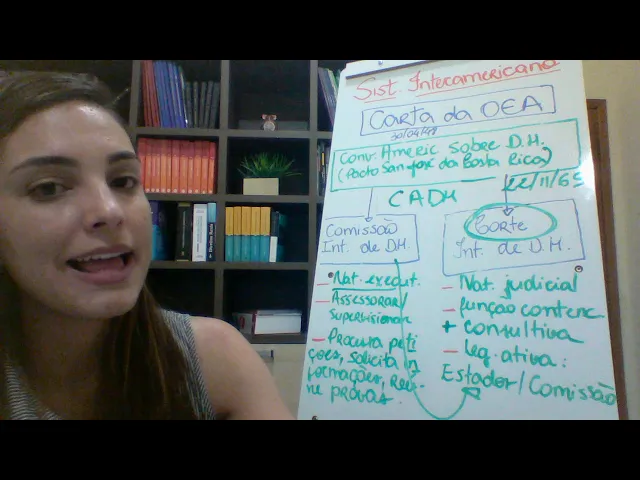 Sist. Interamericano
Carta da OEA
30/04/48
Conv. Americ sobre D.H.
(Pacto San José da Costa Rica)
22/11/69
CADH
Comissão
Int. de D.H.
- Nat. execut.
- Assessorar/
supervisionar
- Procura peti
ções, solicita in
formações, Reú-
ne provas.
Corte
Int. de D.H.
- Nat. judicial
- função contenc.
+ consultiva
- leg. ativa:
Estados/Comissão